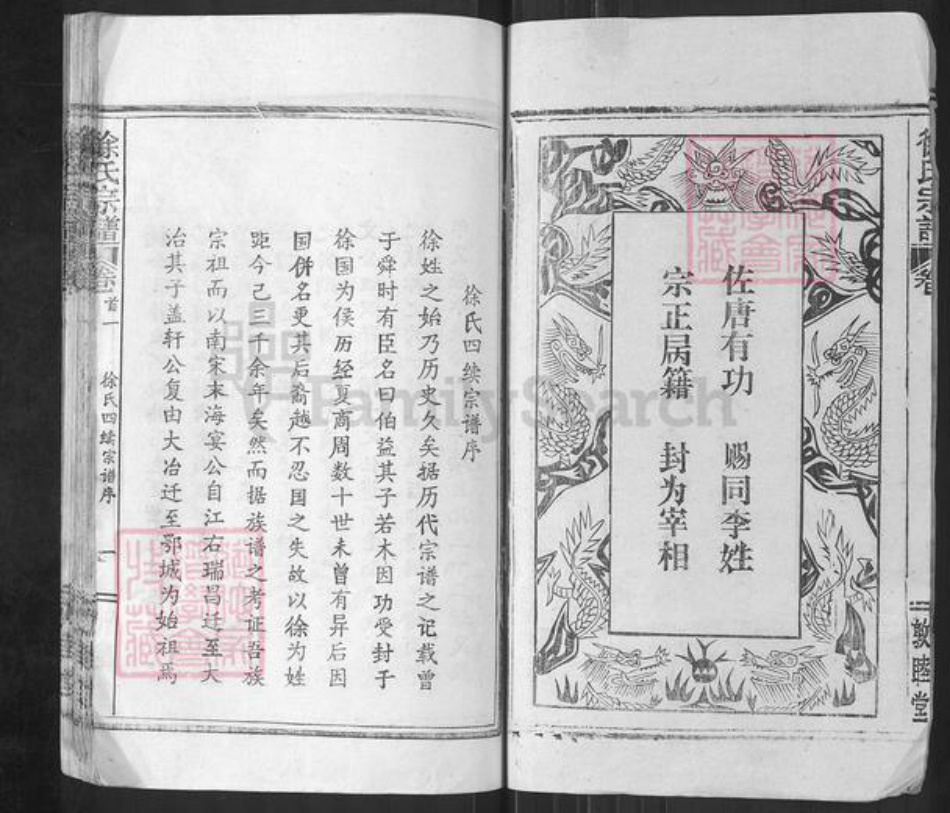 徐氏宗譜
卷
敦睦堂
佐唐有功 赐同李姓
宗正属籍 封为宰相
徐氏四续宗谱序
徐姓之始乃历史久矣据历代宗谱之记载曾
于舜时有臣名曰伯益其子若木因功受封于
徐国为侯历经夏商周数十世未曾有异后因
国併名更其后裔越不忍国之失故以徐为姓
距今己三千余年矣然而据族谱之考证吾族
宗祖而以南宋末海宴公自江右瑞昌迁至大
治其子盖轩公复由大冶迁至鄂城为始祖焉
徐氏宗譜
卷首一
徐氏四续宗谱序
一
FamilySearch